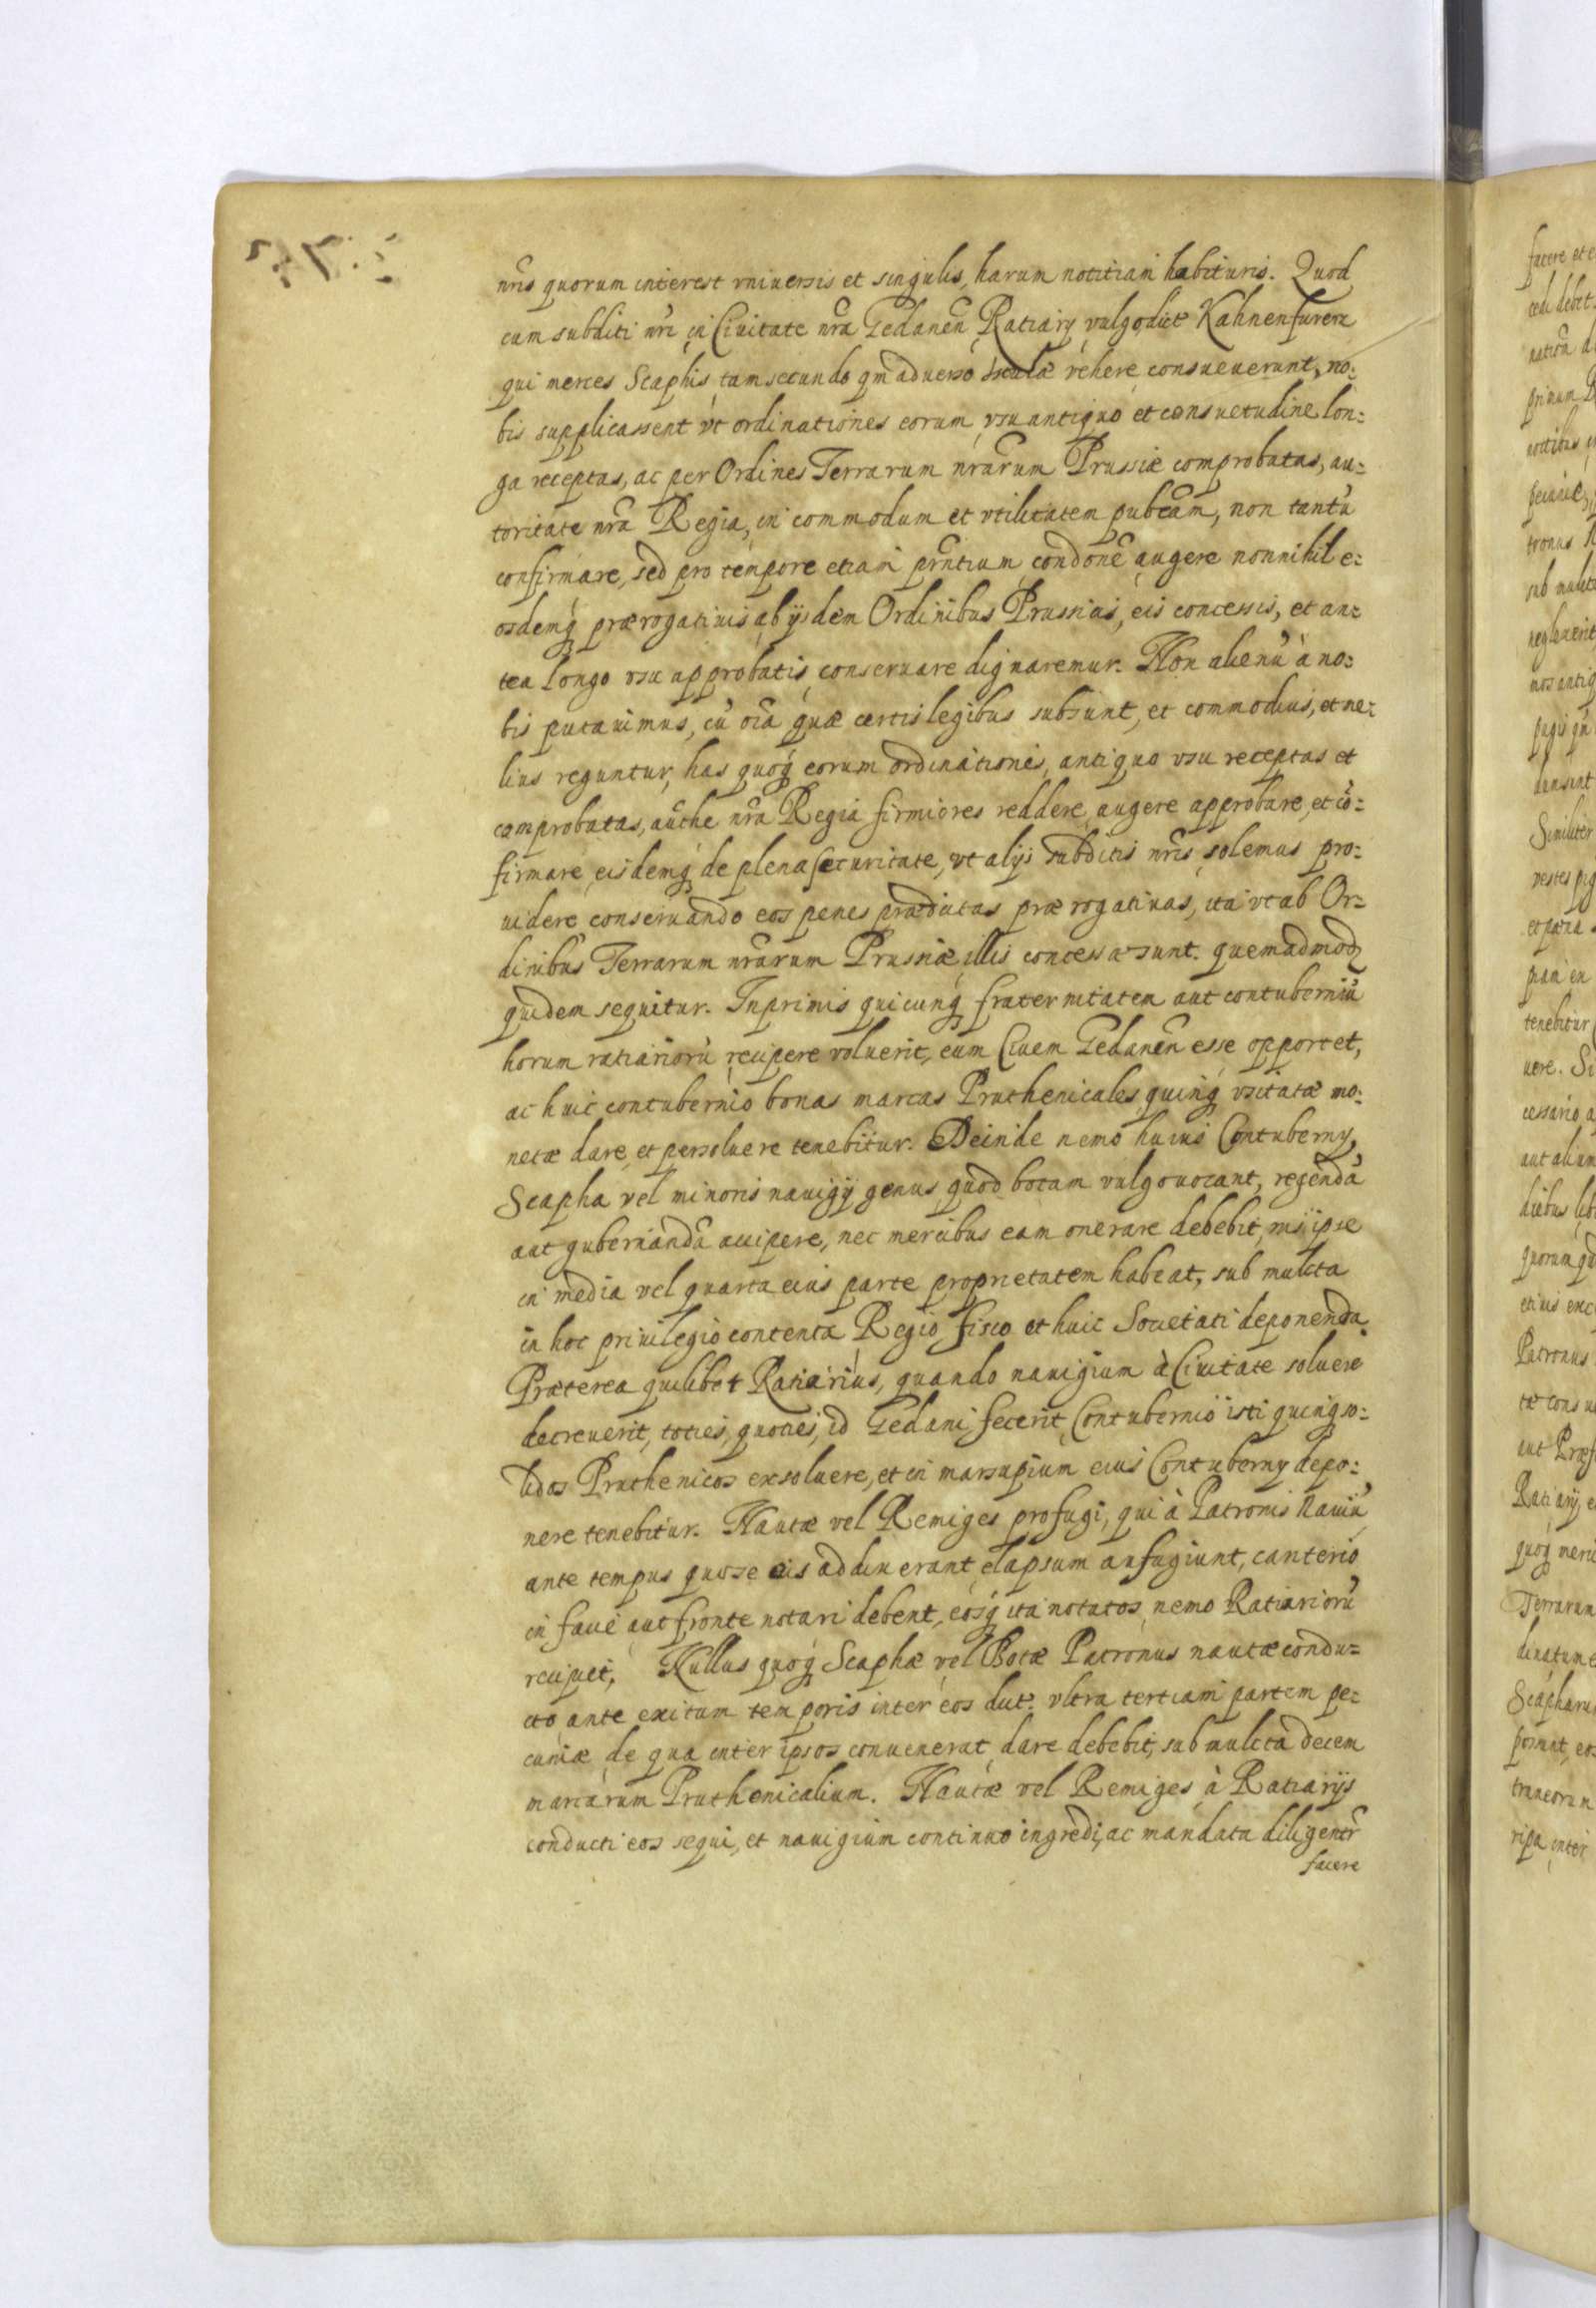 nr̃is quorum interest vniuersis et singulis, harum notitiam habituris. Quod
cum subditi nr̃i in Ciuitate nr̃a Gedaneñ Ratiarij vulgo dict Kahnenfurere
qui merces Scaphis, tam secundo qm̃ aduerso vehere consueuerunt, no=
bis supplicassent vt ordinationes eorum vsu antiquo et consuetudine lon=
ga receptas, ac per Ordines Terrarum nr̃arum Prussiæ comprobatas, au=
toritate nr̃a Regia, in commodum et vtilitatem pubcam, non tantũ
confirmare, sed pro tempore etiam pr̃ntium condoñe augere nonnihil e=
osdemq́ prærogatiuis ab ijsdem Ordinibus Prussiæ, eis concessis, et an=
tea longo vsu approbatis conseruare dignaremur. Non alienũ à no=
bis putauimus, cũ oĩa quæ certis legibus subsunt, et commodius, et me=
lius reguntur, has quoq́ eorum ordinationes, antiquo vsu receptas et
comprobatas, aucthe nr̃a Regia firmiores reddere, augere approbare, et cõ=
firmare, eisdemq́ de plena securitate, vt alijs subditis nr̃is, solemus pro=
uidere conseruando eos penes prædictas prærogatiuas, ita vt ab Or=
dinibus Terrarum nr̃arum Prussiæ, illis concessa sunt. quemadmodũ
quidem sequitur. Inprimis quicunq́ fraternitatem aut contuberniũ
horum ratiariorũ recipere voluerit, eum Ciuem Gedaneñ esse opportet,
ac huic contubernio bonas marcas Pruthenicales quinq́ vsitatæ mo=
netæ dare, et persoluere tenebitur. Deinde nemo huius Contubernij,
Scapha vel minoris nauigij genus quod botam vulgo vocant, regendã
aut gubernandã accipere, nec mercibus eam onerare debebit, nisi ipse
in media vel quarta eius parte proprietatem habeat, sub mulcta
in hoc priuilegio contenta Regio fisco et huic Societati deponenda.
Præterea quilibet Ratiarius, quando nauigium à Ciuitate soluere
decreuerit, toties, quoties, id Gedani fecerit, Contubernio isti quinq́ so=
lidos Pruthenicos exsoluere, et in marsupium eius Contubernij depo=
nere tenebitur. Nautæ vel Remiges profugi, qui à Patronis Nauiũ
ante tempus quo se eis addixerant elapsum aufugiunt, canterio
in facie aut fronte notari debent, eosq́ ita notatos, nemo Ratiariorũ
recipiet. Nullus quoq́ Scaphæ vel Botæ Patronus nautæ condu=
cto ante exitum temporis inter eos dict. vltra tertiam partem pe=
cuniæ de qua inter ipsos conuenerat, dare debebit, sub mulcta decem
marcarum Pruthenicalium. Nautæ vel Remiges à Ratiarijs
conducti eos sequi, et nauigium continuo ingredi, ac mandata diligentr̃
facere